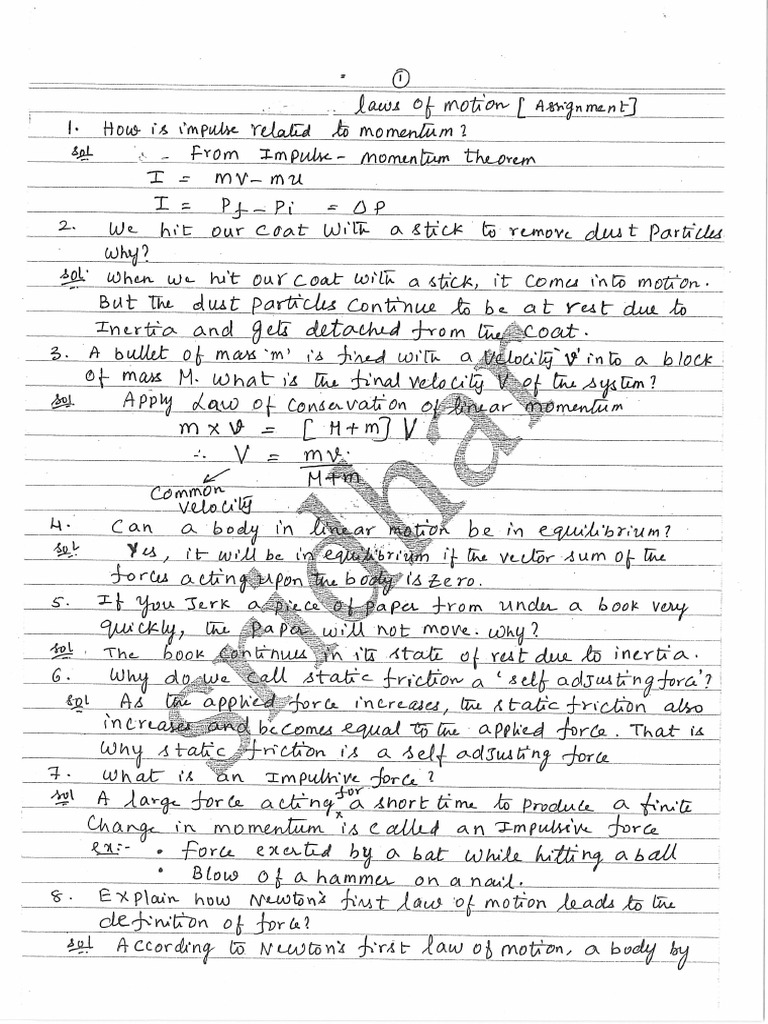 ①
Laws of motion [Assignment]
1. How is impulse related to momentum?
sol From Impulse - momentum theorem
I = mv - mu
I = Pf - Pi = ΔP
2. We hit our coat with a stick to remove dust particles
why?
sol. When we hit our coat with a stick, it comes into motion.
But the dust particles continue to be at rest due to
Inertia and gets detached from the coat.
3. A bullet of mass 'm' is fired with a velocity 'v' into a block
of mass M. What is the final velocity V of the system?
sol Apply Law of conservation of linear momentum
m × v = [M+m] V
∴ V = mv
M+m
Common
velocity
4. Can a body in linear motion be in equilibrium?
sol Yes, it will be in equilibrium if the vector sum of the
forces acting upon the body is zero.
5. If you Jerk a piece of paper from under a book very
quickly, the paper will not move. why?
sol. The book continues in its state of rest due to inertia.
6. Why do we call static friction a 'self adjusting force'?
sol As the applied force increases, the static friction also
increases and becomes equal to the applied force. That is
why static friction is a self adjusting force
7. What is an Impulsive force?
sol A large force acting for a short time to produce a finite
change in momentum is called an Impulsive force
ex:- • Force exerted by a bat while hitting a ball
• Blow of a hammer on a nail.
8. Explain how Newton's first law of motion leads to the
definition of force?
sol According to Newton's first law of motion, a body by
sridhar